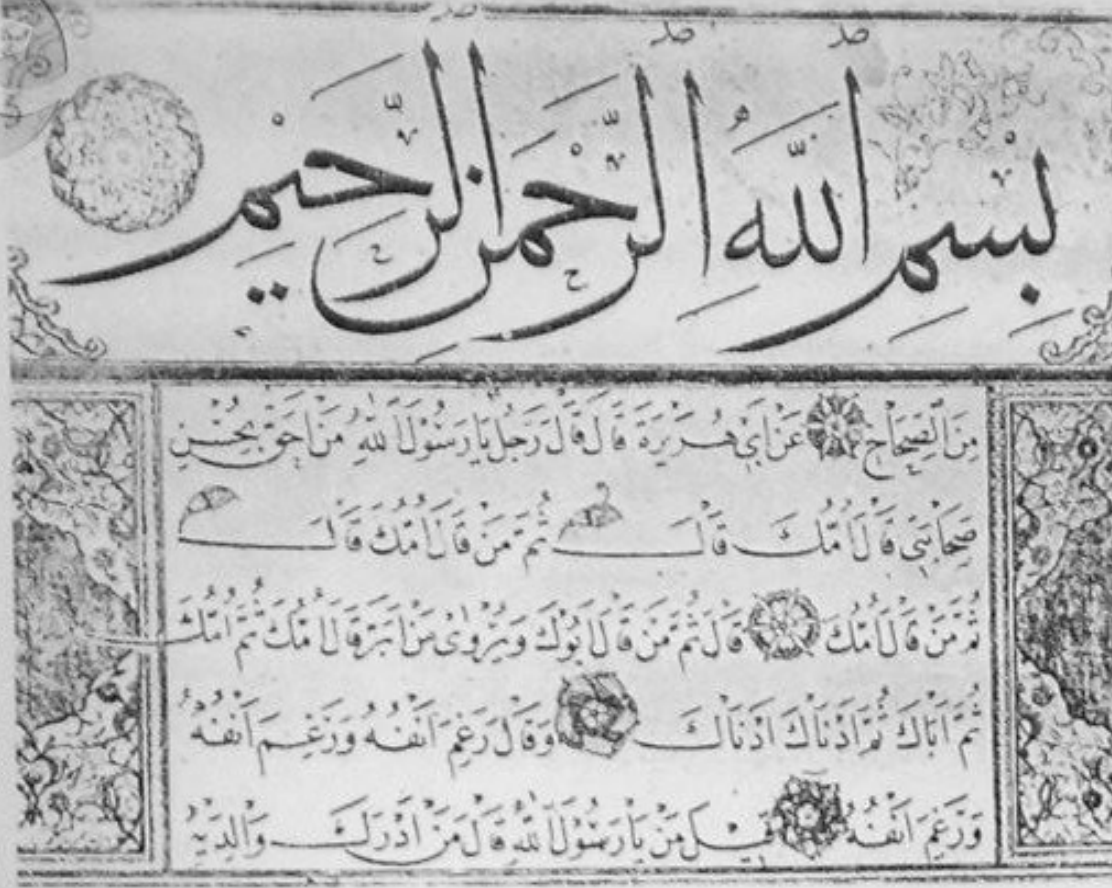 بِسْمِ اللَّهِ الرَّحْمَنِ الرَّحِيمِ
مِنَ الصِّحَاحِ عَنْ اَبِي هُرَيْرَةَ قَالَ قَالَ رَجُلٌ يَا رَسُولَ اللّٰهِ مَنْ اَحَقُّ بِحُسْنِ
صَحَابَتِي قَالَ اُمُّكَ قَالَ ثُمَّ مَنْ قَالَ اُمُّكَ قَالَ
ثُمَّ مَنْ قَالَ اُمُّكَ قَالَ ثُمَّ مَنْ قَالَ اَبُوكَ وَيُرْوٰى مَنْ اَبَرُّ قَالَ اُمَّكَ ثُمَّ اُمَّكَ
ثُمَّ اَبَاكَ ثُمَّ اَدْنَاكَ اَدْنَاكَ وَقَالَ رَغِمَ اَنْفُهُ وَرَغِمَ اَنْفُهُ
وَرَغِمَ اَنْفُهُ قِيلَ مَنْ يَا رَسُولَ اللّٰهِ قَالَ مَنْ اَدْرَكَ وَالِدَيْهِ